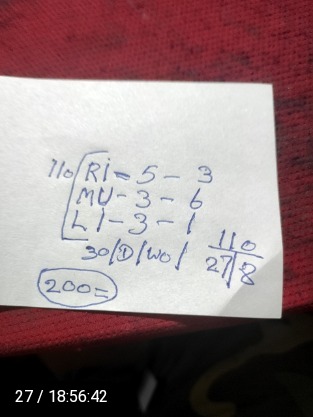 110 RI = 5 - 3
MU - 3 - 6
LI - 3 - 1
30/D/WO/
110
27/8
200=
27 / 18:56:42